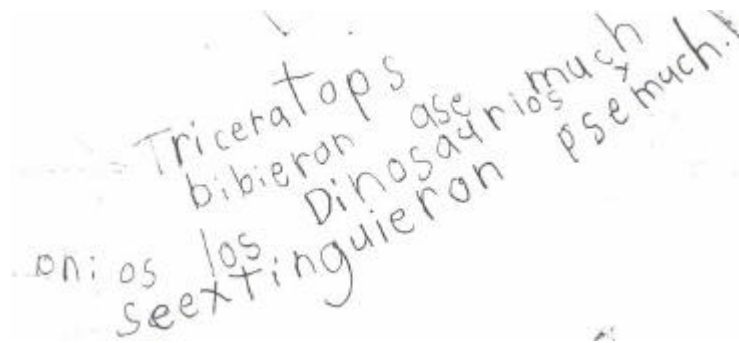 Triceratops
bibieron ase much
onios los Dinosaurios x
seextinguieron psemuch.